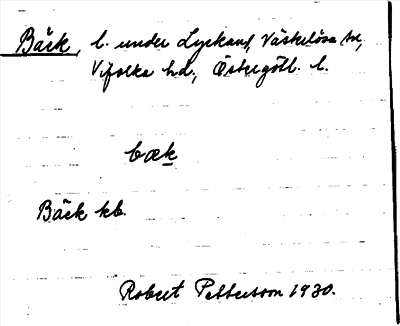 Bäck, l. under Lyckan, Väderlösa sn,
Vifolka hd., Östergötl. l.
bæk
Bäck kb.
Robert Pettersson 1930.